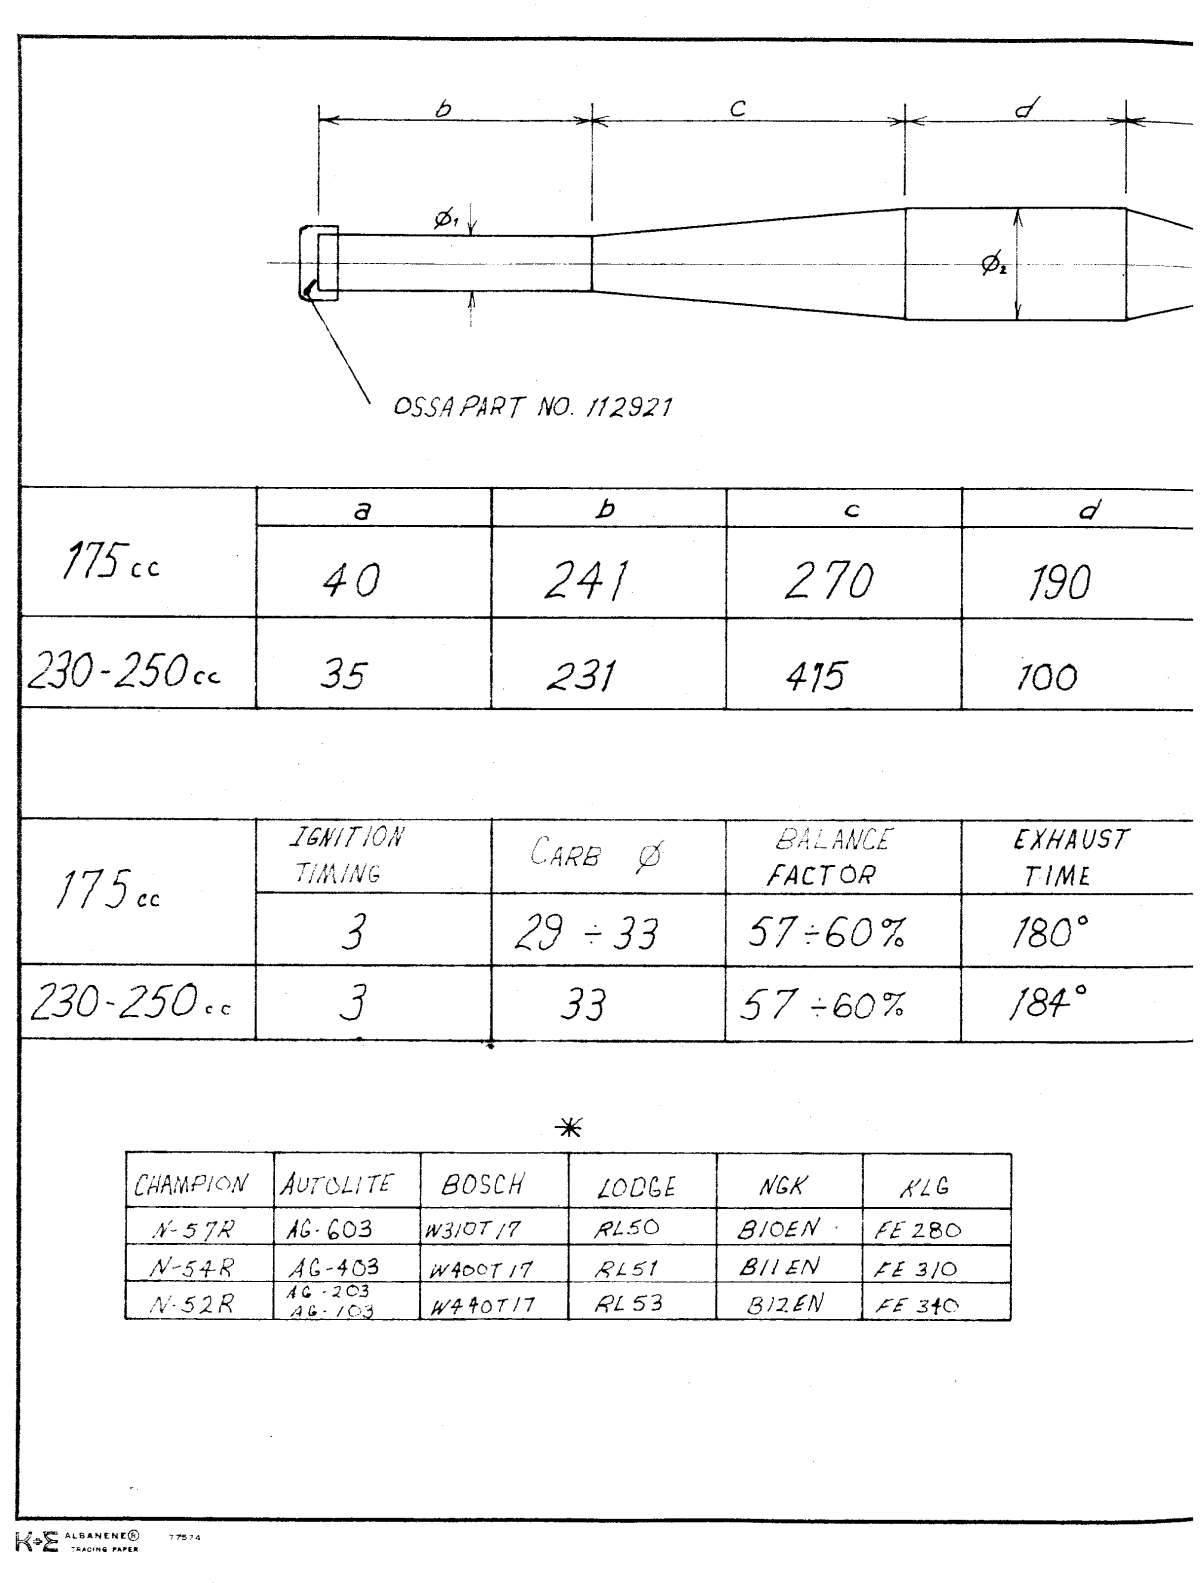 b c d
Ø1
Ø2
OSSA PART NO. 112921
a b c d
175cc 40 241 270 190
230-250cc 35 231 415 100
IGNITION TIMING CARB Ø BALANCE FACTOR EXHAUST TIME
175cc 3 29 ÷ 33 57÷60% 180°
230-250cc 3 33 57÷60% 184°
*
CHAMPION AUTOLITE BOSCH LODGE NGK KLG
N-57R AG-603 W310T17 RL50 B10EN FE 280
N-54R AG-403 W400T17 RL51 B11EN FE 310
N-52R AG-203 AG-103 W440T17 RL53 B12EN FE 340
K+E ALBANENE® 77574
TRACING PAPER